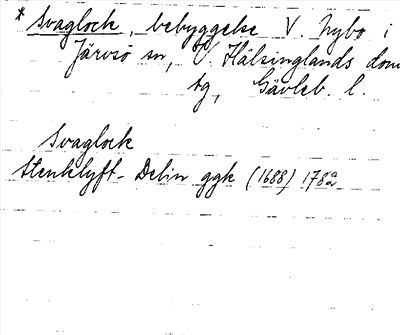 * Svaglock, bebyggelse V. Nybo i
Järvsö sn, V. Hälsinglands dom
sg, Gävleb. l.
Svaglock
Stenklyft - Delin ggk (1688) 178